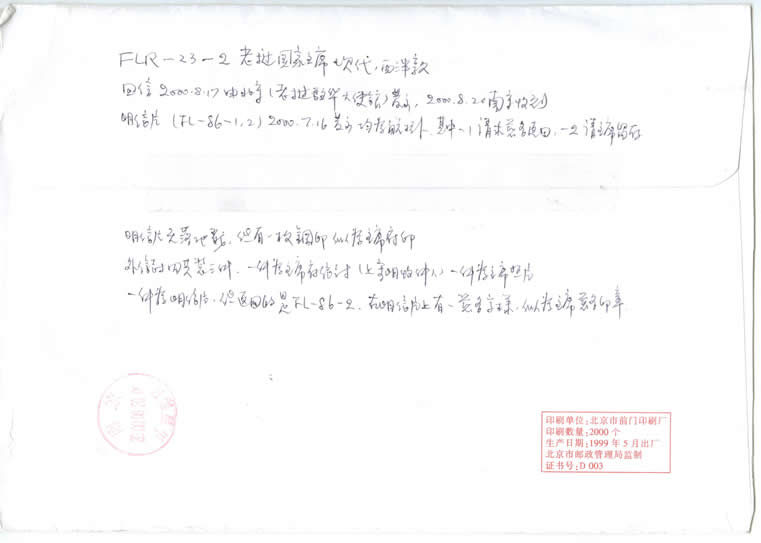 FLR-23-2 老挝国家主席 坎代·西潘敦
回信 2000.8.17 由北京(老挝驻华大使馆)寄出, 2000.8.20南京收到
明信片 (FL-86-1,2) 2000.7.16 寄出 均为航空. 其中-1请求签名返回, -2请主席留存
明信片无落地戳, 但有一枚钢印似为主席府印
外信封内共装三件, 一件为主席府信封(上写明收件人) 一件为主席照片
一件为明信片, 但返回的是FL-86-2. 在明信片上有一签名字样, 似为主席签名印章
印刷单位:北京市前门印刷厂
印刷数量:2000个
生产日期:1999年5月出厂
北京市邮政管理局监制
证书号:D 003